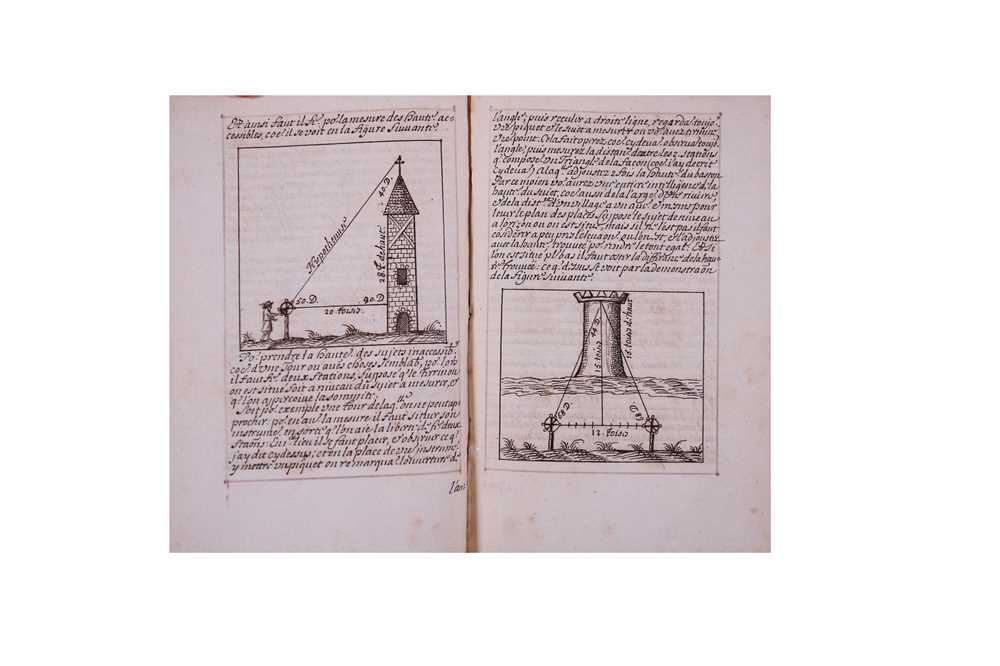 Et ainsi faut il fr. por. la mesure des haute. ac-
cessibles, coe. il se voit en la figure suivante.
40. D.
Hypothenuse
28 T. de haut
50. D.
90. D
20 toises
Por. prendre la haute. des sujets inaccessib.
coe. d'une Tour ou aues. choses semblab. por. lors
il faut fr. deux stations, supose q. le terrin ou
on est situe soit a niveau du sujet a mesurer, et
q. lon appercoive la sommite.
Soit por. exemple une tour de laq.lle on ne peut ap-
prochir por. en auoir la mesure il faut situer son
instrumt. en sorte q. lon aie la liberte de fr. deux
stations: En lieu il se faut placer, et observer ce q.
j'ay dit cy dessus; et en la place de vre. instrumt.
y mettre un piquet on remarqua. l'ouverture de
l'an
l'angle; puis reculer a droite ligne, regardat. toujo.
vre. piquet et le sujet a mesurer on vo. avez termine
vre. point. Cela fait operez coe. cy deva. observat. toujo.
l'angle; puis mesurez la distan. d'entre les 2. stations
q. compose un Triangle de la facon (coe. l'ay decrit
cy deva.) A laq. adjoustez 2 fois la haute. du baston
Par ce moien vo. aurez une entire intelligence de la
haute. du sujet, coe. aussi de la largr. des rivirs.
et de la dist. d'un village a un aue. et mens. pour
lever le plan des places supose le sujet de niveau
a lorizon ou on est situe, mais s'il n'est pas il faut
cosiderer a peu pres l'elevaon. ou lon est, et l'adjouster
avec la haute. trouvee por. rendre le tout egal. Et si
lon est situe pl. bas il faut oster la differance de la hau-
te. trouvee: ce q. dessus se voit par la demonstraon.
de la figure suivante.
44. D.
15. toises
15. toises d. haut
68 D.
68 D.
12. toises